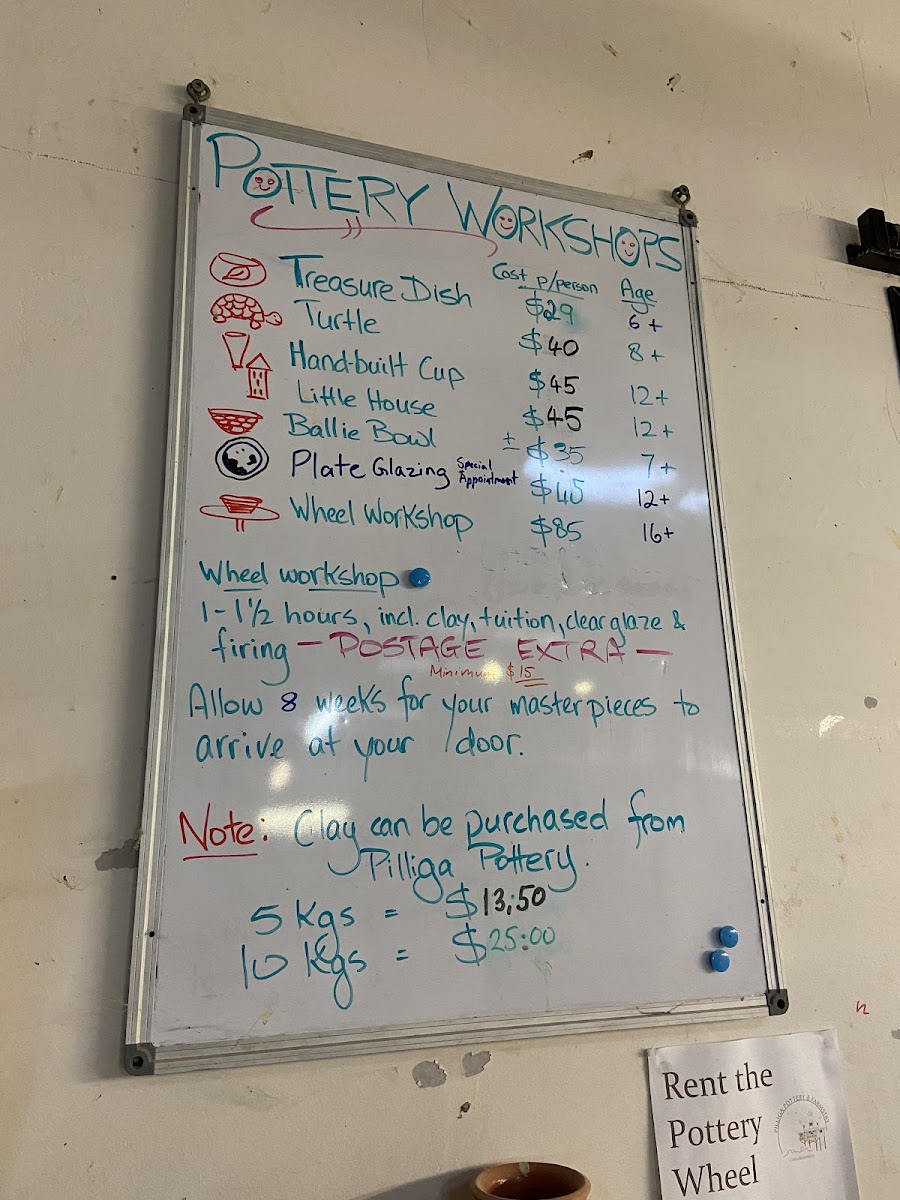 POTTERY WORKSHOPS
Cost p/person Age
Treasure Dish $29 6+
Turtle $40 8+
Hand-built Cup $45 12+
Little House $45 12+
Ballie Bowl ± $35 7+
Plate Glazing Special Appointment $45 12+
Wheel Workshop $85 16+
Wheel workshop
1-1½ hours, incl. clay, tuition, clear glaze &
firing - POSTAGE EXTRA -
Minimum $15
Allow 8 weeks for your masterpieces to
arrive at your door.
Note: Clay can be purchased from
Pilliga Pottery.
5 Kgs = $13,50
10 Kgs = $25:00
Rent the
Pottery
Wheel
PILLIGA POTTERY & FARMSTAY